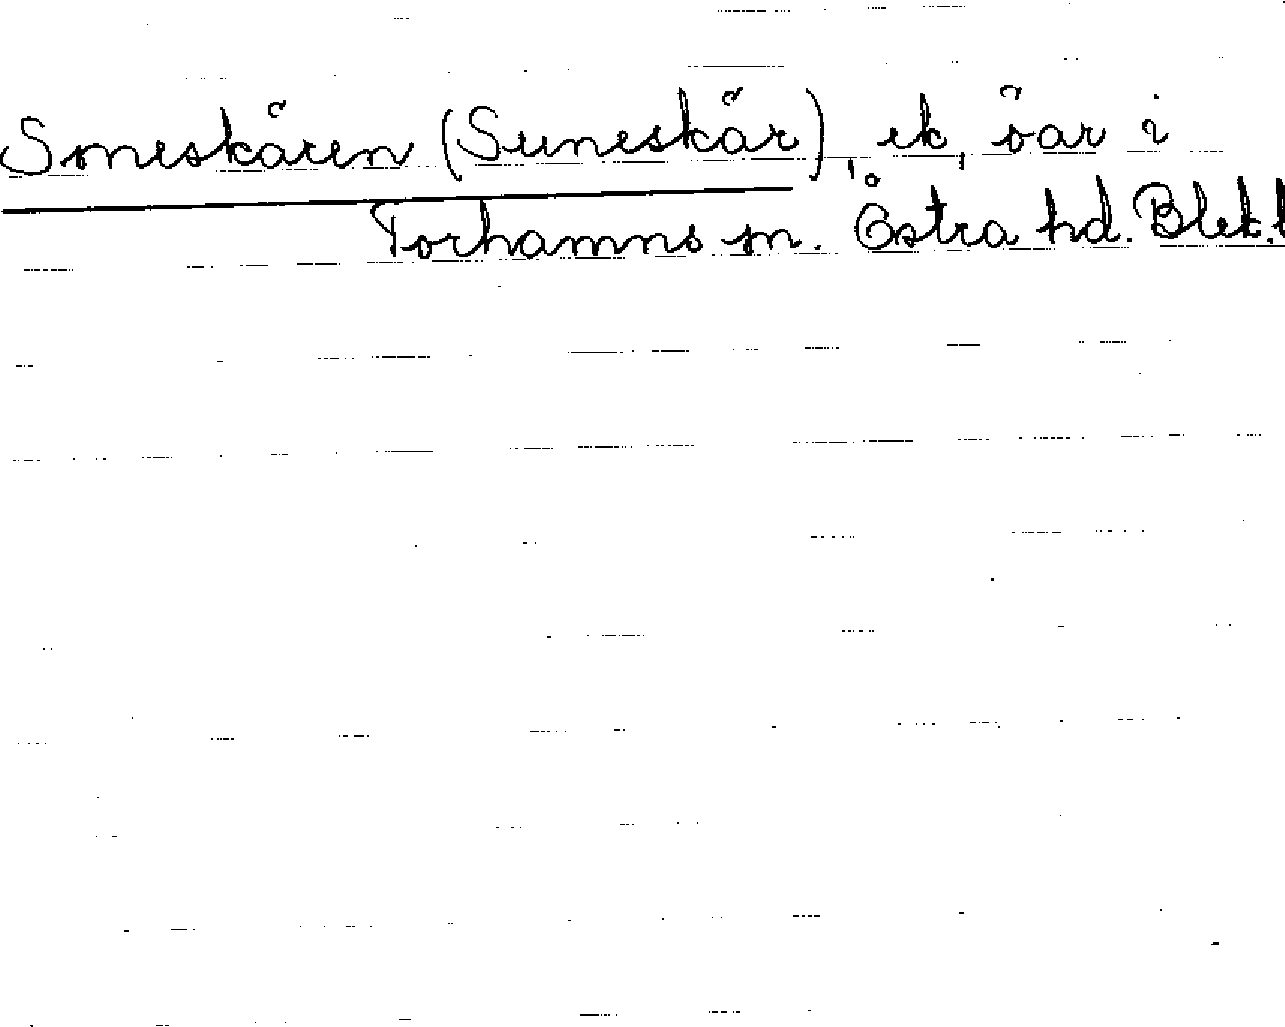 Smeskären (Suneskär), ek, öar i
Torhamns sn. Östra hd. Blek.l